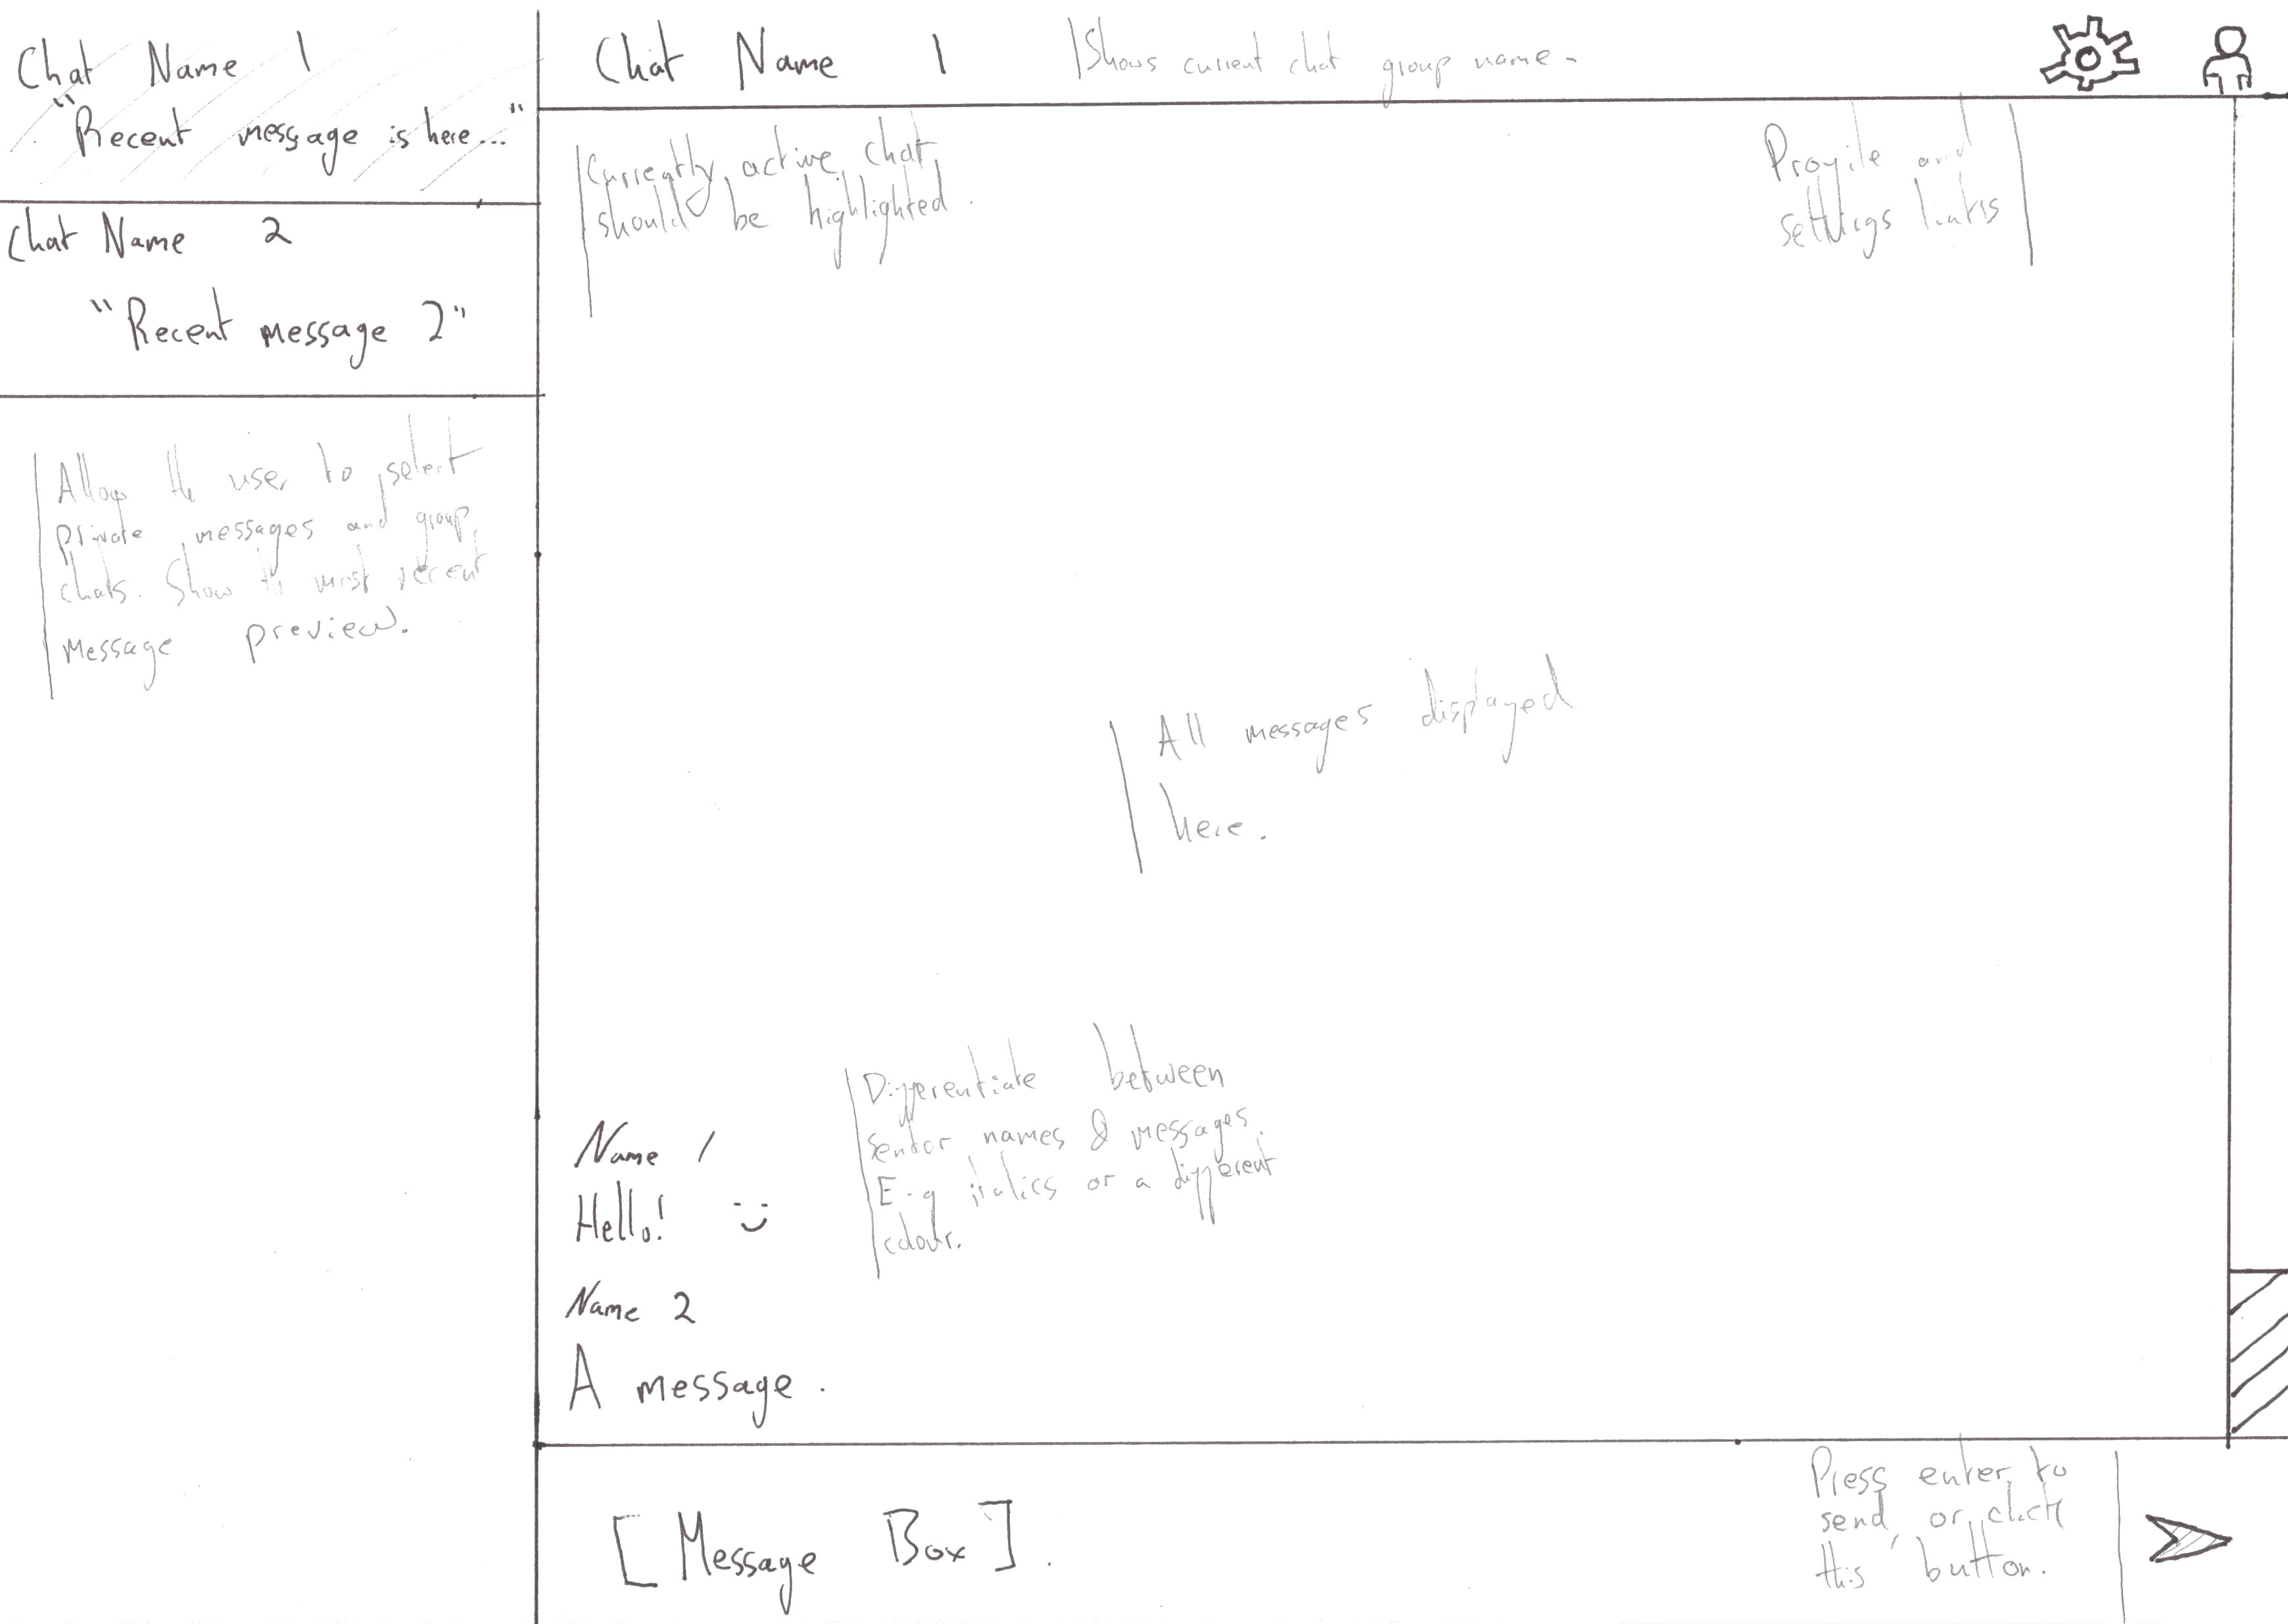 Chat Name 1
"Recent message is here..."
Chat Name 2
"Recent message 2"
Allow the user to select
private messages and group
chats. Show the most recent
message preview.
Chat Name 1
Shows current chat group name.
Currently active chat
should be highlighted.
Profile and
settings links
All messages displayed
here.
Differentiate between
sender names & messages.
E.g italics or a different
colour.
Name 1
Hello! :)
Name 2
A message.
[Message Box].
Press enter to
send, or click
this button.